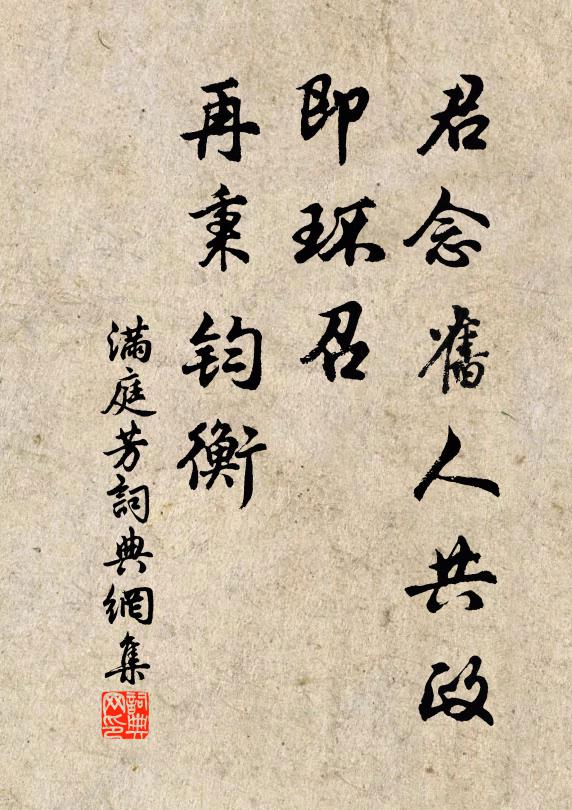 君念舊人共政
即环召
再秉鈞衡
滿庭芳詞典網集
詞典网印